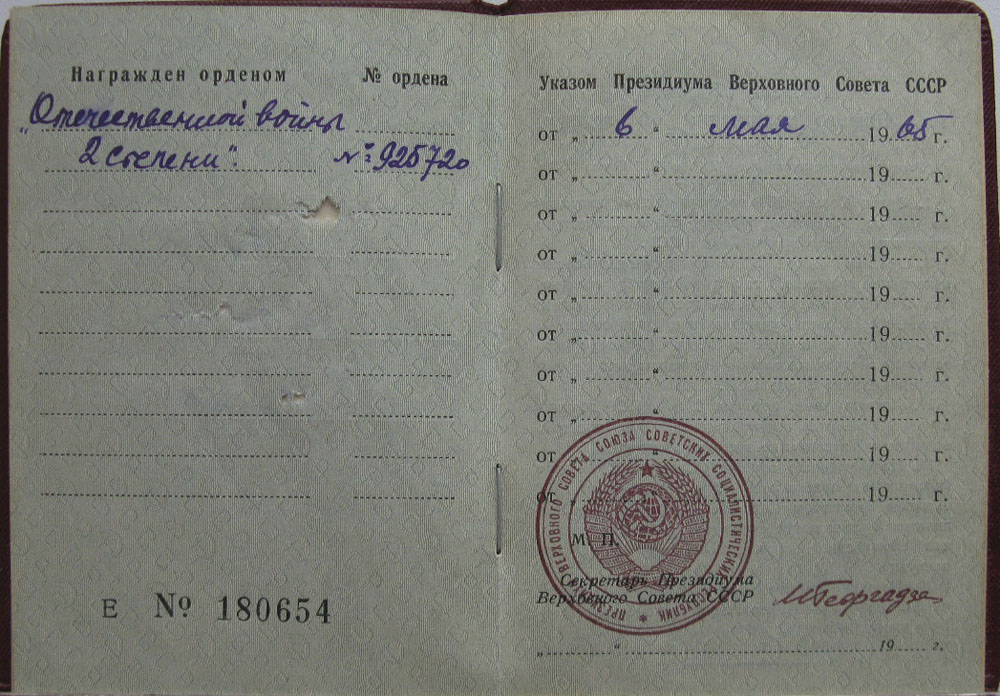 Награжден орденом № ордена
„Отечественной войны
2 степени". №: 925720
Е № 180654
Указом Президиума Верховного Совета СССР
от „ 6 “ мая 1965 г.
от „ “ 19 г.
от „ “ 19 г.
от „ “ 19 г.
от „ “ 19 г.
от „ “ 19 г.
от „ “ 19 г.
от „ “ 19 г.
от „ “ 19 г.
от „ 19 г.
ПРЕЗИДИУМ ВЕРХОВНОГО СОВЕТА СОЮЗА СОВЕТСКИХ СОЦИАЛИСТИЧЕСКИХ РЕСПУБЛИК
М. П.
Секретарь Президиума
Верховного Совета СССР
МГеоргадзе
„ “ 19 г.